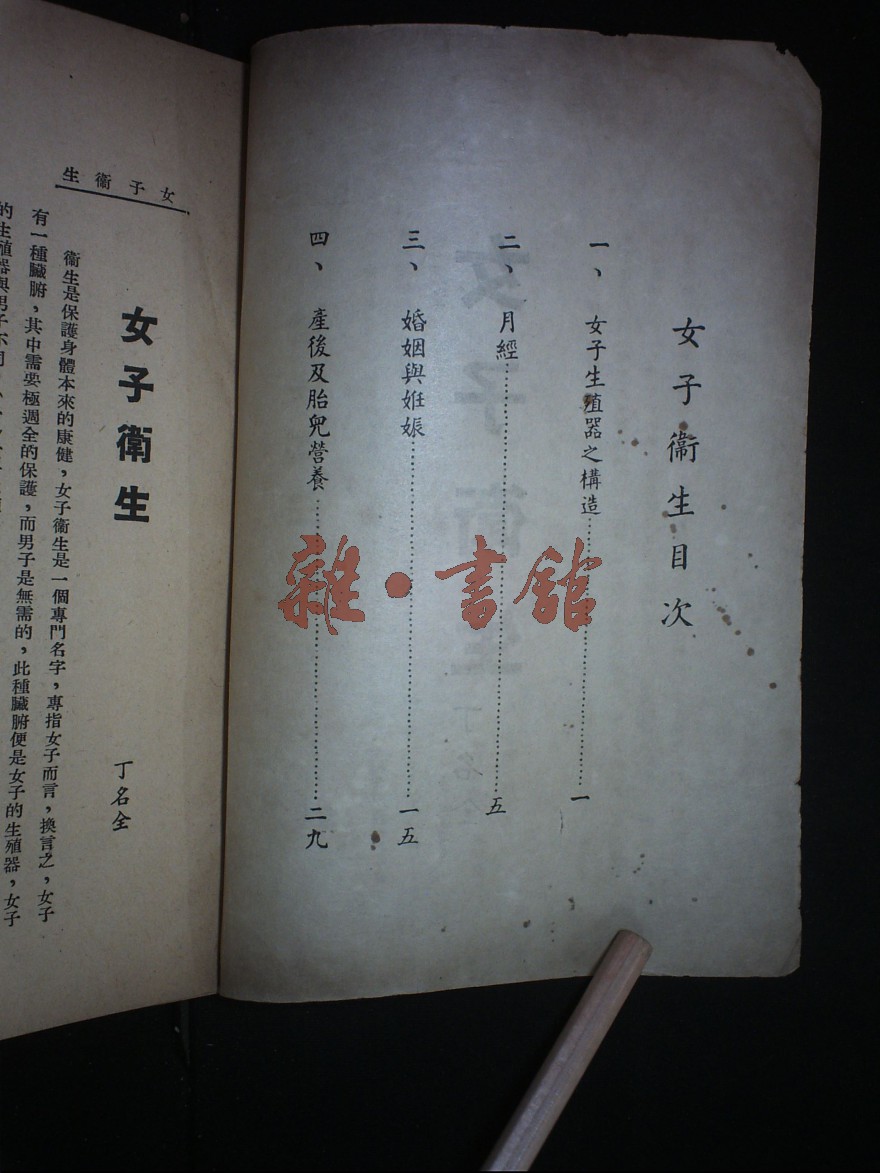 女子衞生目次
一、女子生殖器之構造……一
二、月經……五
三、婚姻與姙娠……一五
四、產後及胎兒營養……二九
雜·書館
女子衞生
女子衛生
丁名全
衞生是保護身體本來的康健，女子衞生是一個專門名字，專指女子而言，換言之，女子
有一種臟腑，其中需要極週全的保護，而男子是無需的，此種臟腑便是女子的生殖器，女子
的生殖器與男子不同